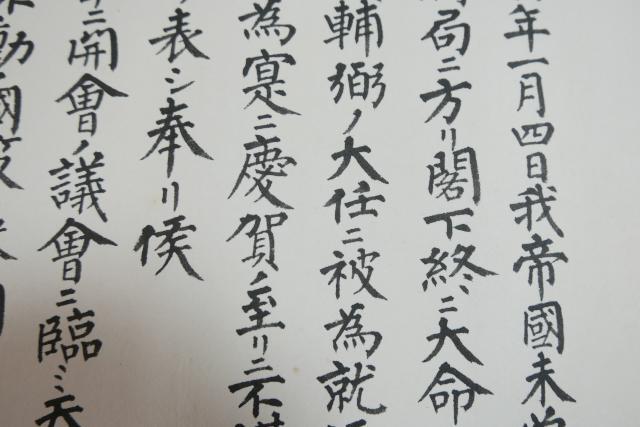 年一月四日我帝國未曾
局ニ方リ閣下終ニ大命
輔弼ノ大任ニ被為就
為寔ニ慶賀ノ至リニ不
表シ奉リ候
ニ開會ノ議會ニ臨ミ天
動國